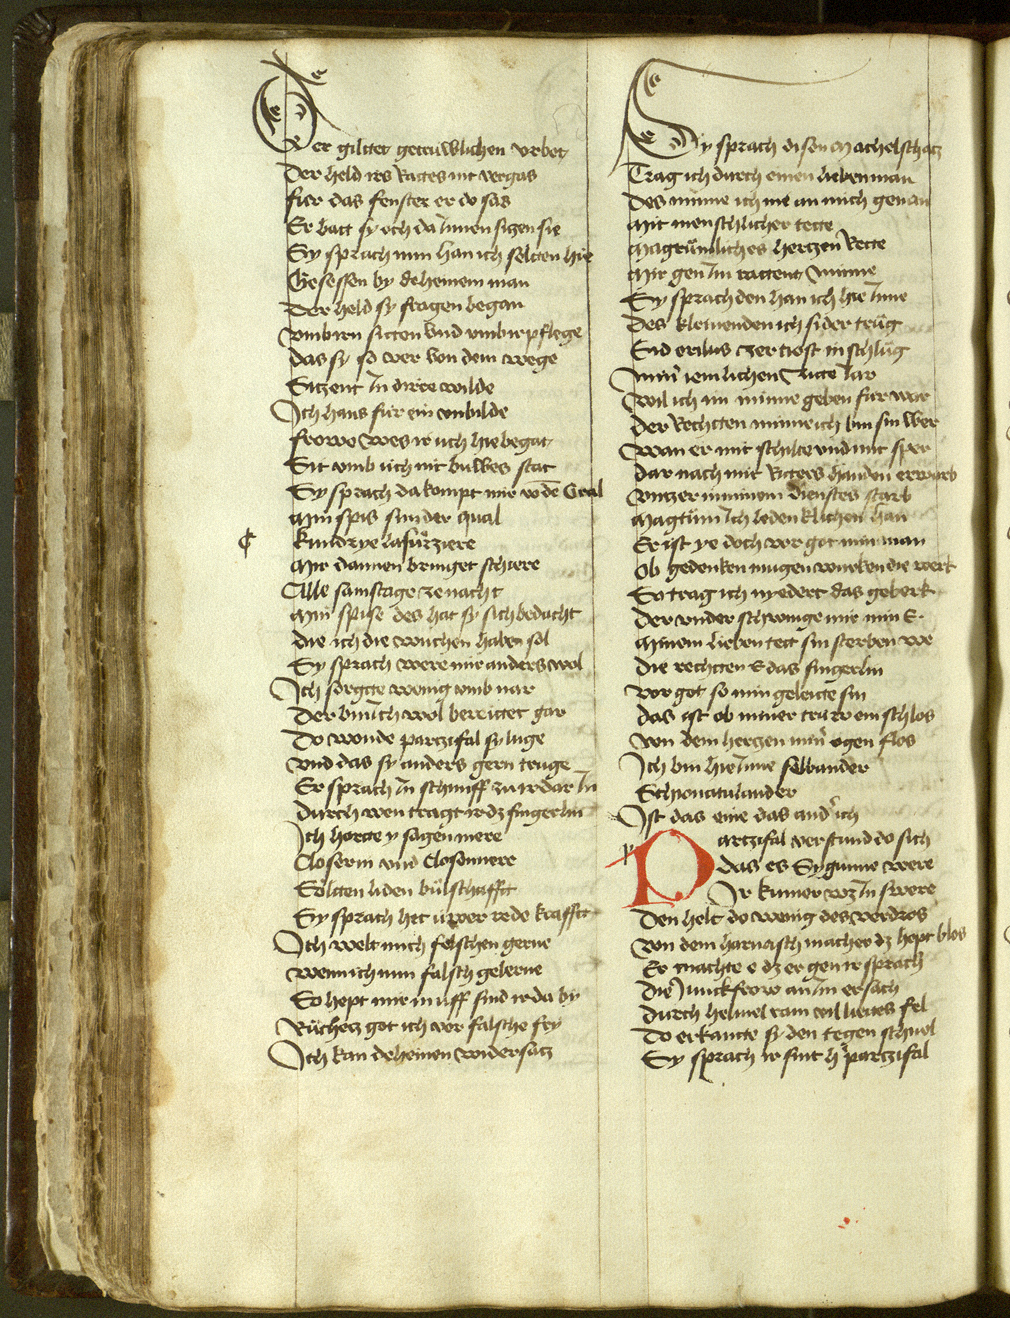 Der giltet getrúwlichen vrbot
Der held irs Rattes nit vergas
fúr das fenster er do sas
Er batt sy och da Innen sizen sie
Sy sprach nun han ich selten hie
Gesessen by deheinem man
Der held sy fragen began
vmb irn sitten vnd vmb ir pflege
das sy so ver von dem wege
Sitzent In dirre wilde
Ich hans fúr ein vnbilde
frowe wes ir úch hie begat
Sit vmb úch nit buwes stat
Sy sprach da kompt mir vō dē Gral
Min spis sunder qual
Kundrye lasurziere
Mir dannen bringet schiere
Alle samstage ze nacht
Min spise des hat sy sich bedacht
die ich die wuchen haben sol
Sy sprach were mir anders wol
Ich sorgte wenig vmb nar
Der bin Ich wol bereittet gar
Do wonde partzifal sy luge
vnd das sy anders gern truge
Er sprach In schimff zu ir dar In
durch wen tragt ir dz fingerlin
Ich horte y sagen mere
Closerin vnd Closennere
Sölten liden bůlschafft
Sy sprach het úwer rede krafft
Ich welt mich felschen gerne
wenn ich nun falsch gelerne
So hept mir in uff sind ir da by
Růchez got ich wer falsche fry
Ich kan deheinen widersatz
Sy sprach disen Machelschatz
Trag ich durch einen lieben man
des minne ich nie an mich genan
Mit menschlicher tette
Magtůmliches hertzen Rette
Mir gen Im rattent minne
Sy sprach den han ich hie Inne
des kleinenden ich sider trůg
Sid orilus zer tiost in schlůg
Miner iemlichen zitte Iar
wil ich im minne geben fúr war
der Rechten minne ich bin sin wer
wan er mit schilte vnd mit sper
dar nach mit Ritters handen erwarb
vntz er in minem dienstes starb
Magtům Ich ledenklichen han
Er ist ye doch vor got min man
Ob gedenken mugen wúrken die werk
So trag ich nyedert das geberk
der vnder schwinge mir min E
Minem lieben tett sin sterben we
die rechten E das fingerlin
vor got so min geleitte sin
das ist ob miner trúw ein schlos
von dem hertzen min ogen flos
Ich bin hie Inne selbander
Schionatulander
Ist das eine das ander ich
Partzifal verstund do sich
das es Sygunne were
Ir kumer wz In swere
Den helt do wenig des verdros
von dem harnasch macher dz hept blos
Er machte e dz er gen ir sprach
die Junckfrow an Im ersach
durch helmel ram vil liehtes fel
do erkante sy den tegen schnel
Sy sprach ir sint h' partzifal